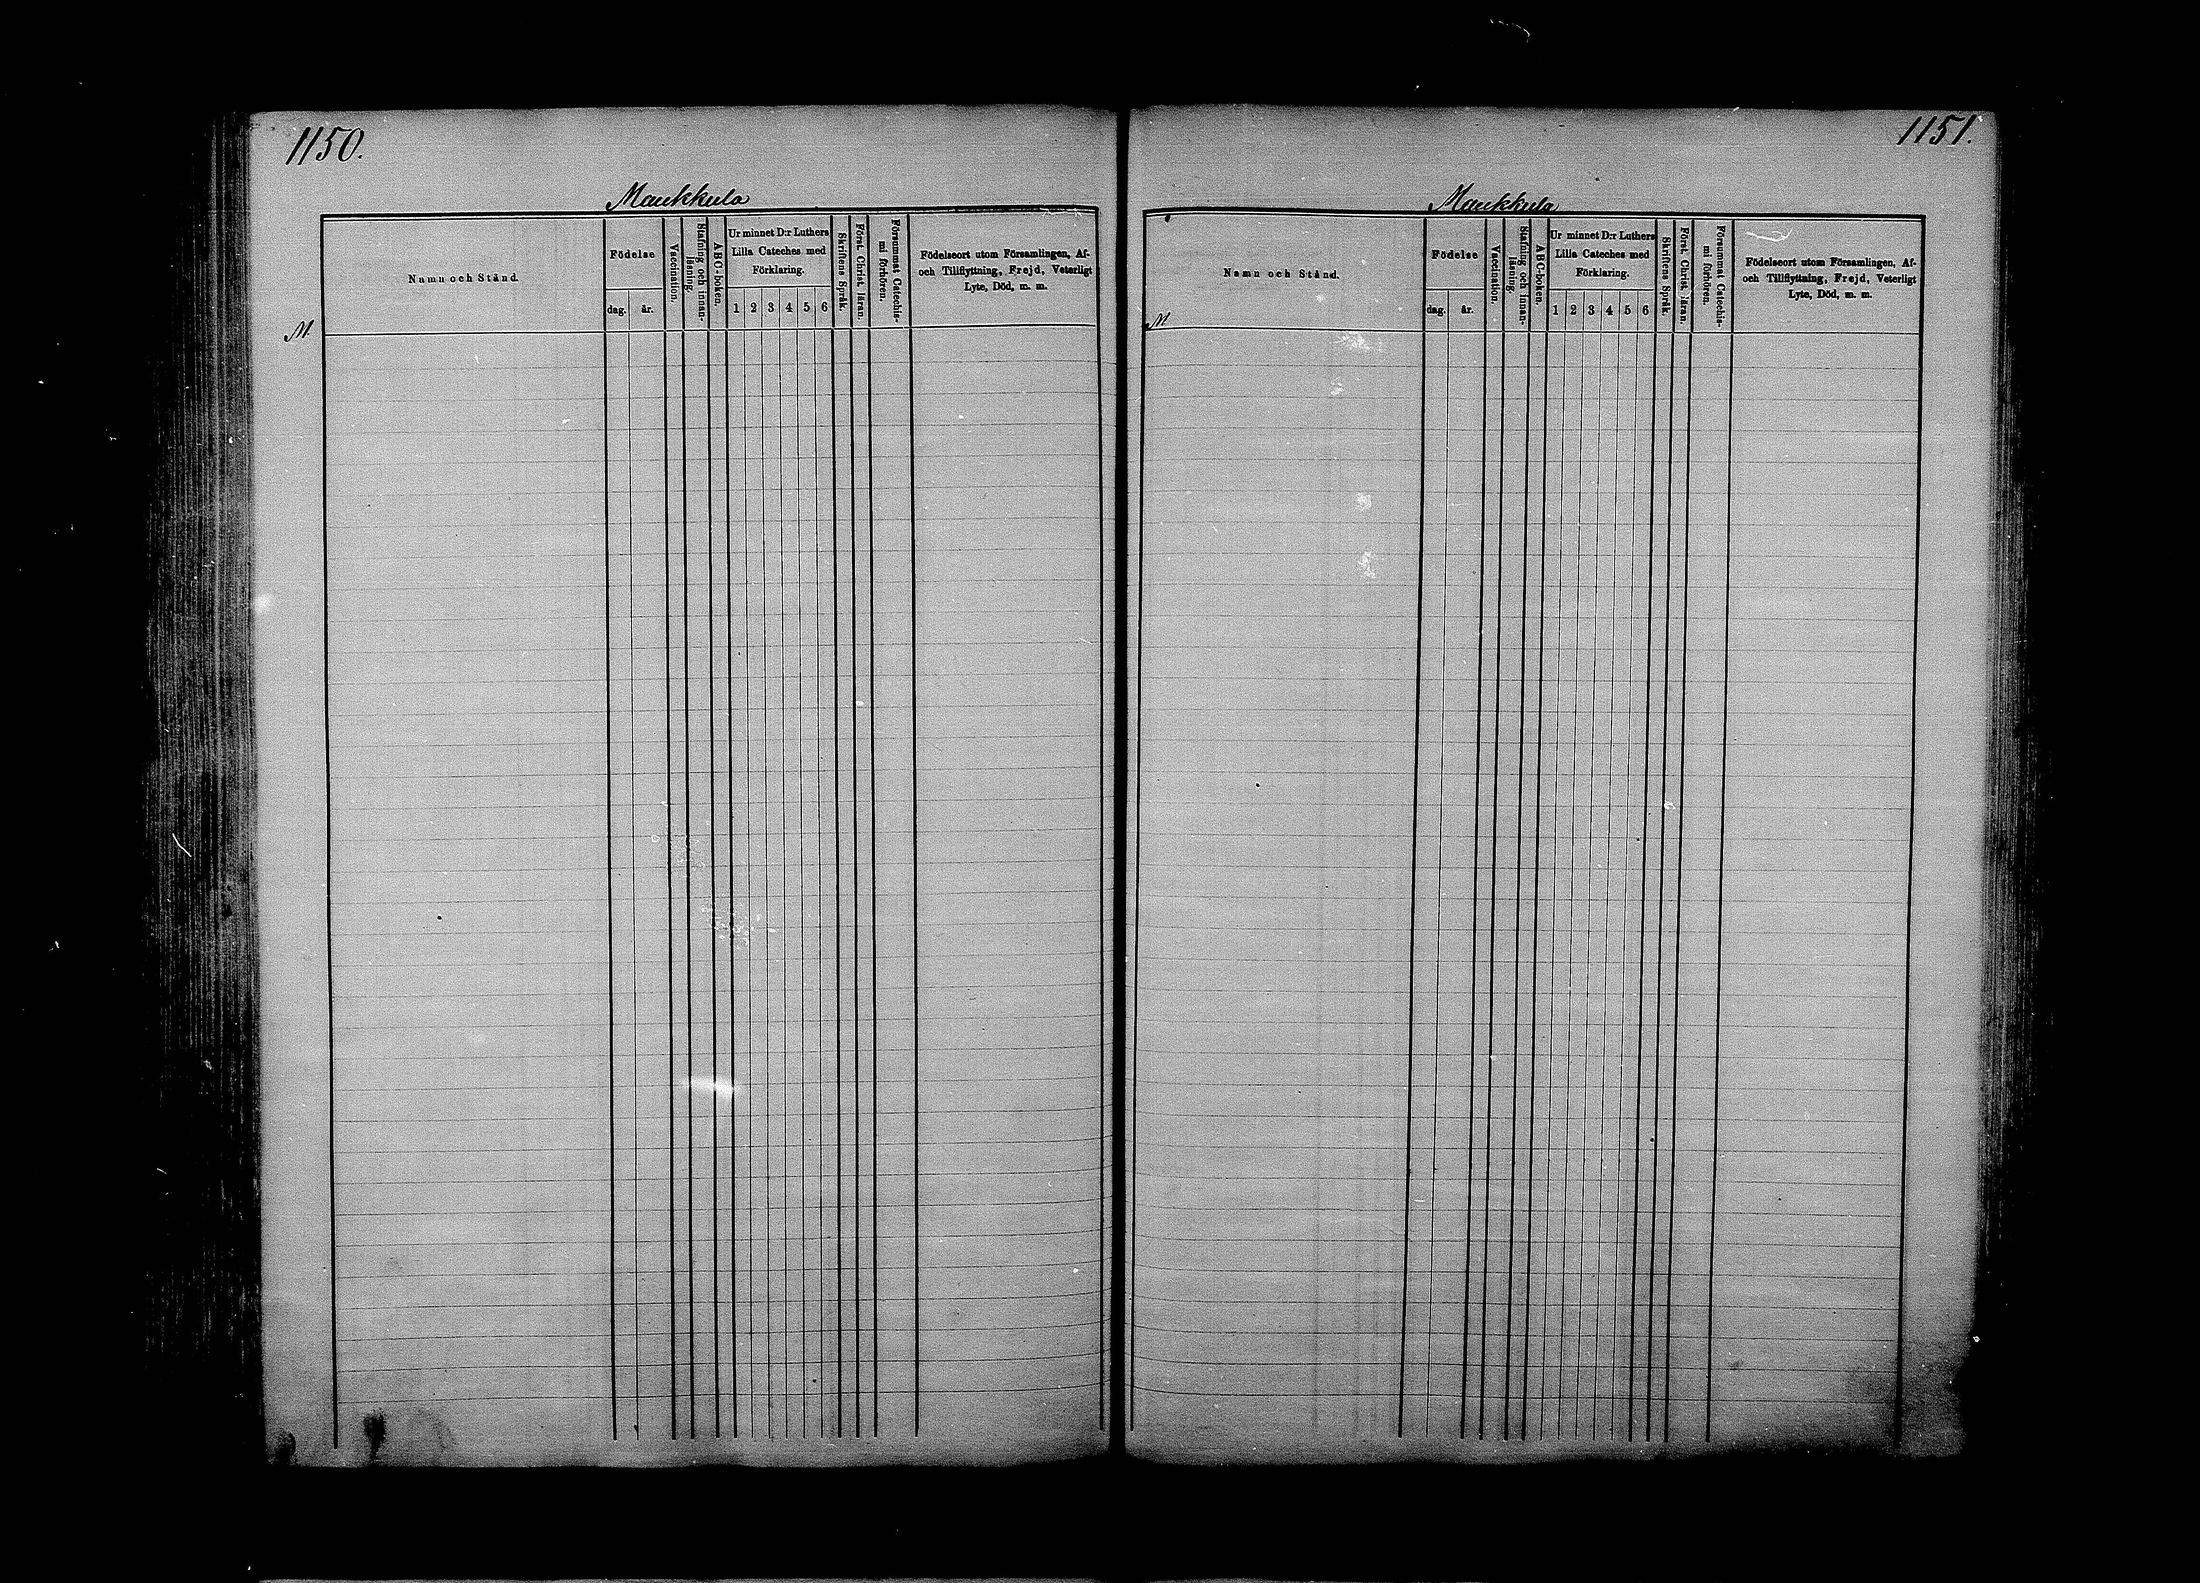 1150.
Maukkula
Namn och Stånd.
Födelse
dag.
år.
Vaccination.
Stafning och innan-
läsning.
ABC-boken.
Ur minnet D:r Luthers
Lilla Cateches med
Förklaring.
1 2 3 4 5 6
Skriftens Språk.
Först. Christ. läran.
Försummat Catechis-
mi förhören.
Födelseort utom Församlingen, Af-
och Tillflyttning, Frejd, Veterligt
Lyte, Död, m. m.
M
1151.
Maukkula
Namn och Stånd.
Födelse
dag.
år.
Vaccination.
Stafning och innan-
läsning.
ABC-boken.
Ur minnet D:r Luthers
Lilla Cateches med
Förklaring.
1 2 3 4 5 6
Skriftens Språk.
Först. Christ. läran.
Försummat Catechis-
mi förhören.
Födelseort utom Församlingen, Af-
och Tillflyttning, Frejd, Veterligt
Lyte, Död, m. m.
M